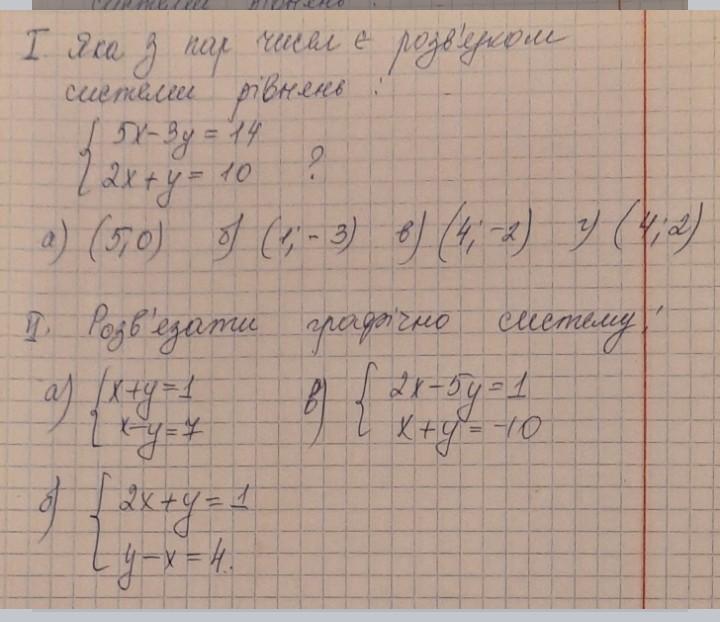 системи рівнянь:
I. Яка з пар чисел є розв'язком
системи рівнянь:
{ 5x-3y=14
2x+y=10 ?
а) (5;0) б) (1;-3) в) (4;-2) г) (4;2)
II. Розв'езати графічно систему:
а) { x+y=1 в) { 2x-5y=1
x-y=7 x+y=-10
б) { 2x+y=1
y-x=4.